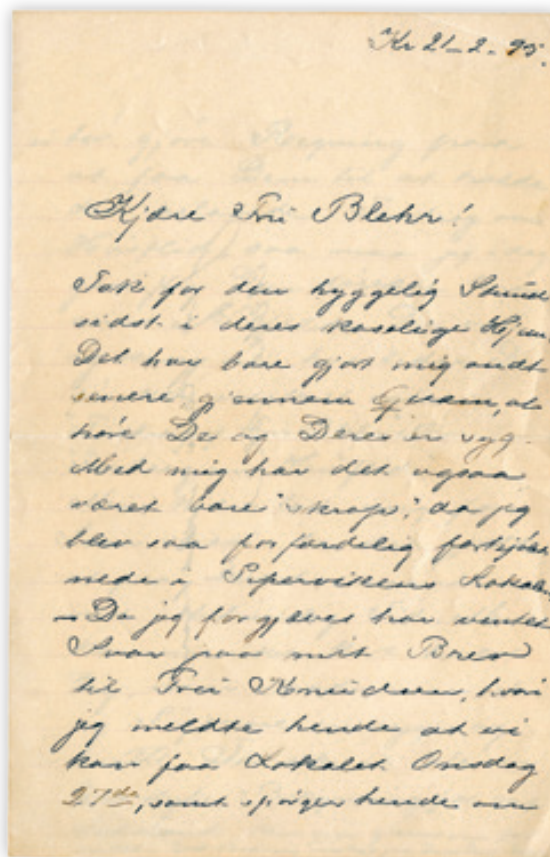 Kr 21-2-95.
Kjære Fru Blehr!
Tak for den hyggelig Stund
sidst i deres koselige Hjem.
Det har bare gjort mig ondt
senere gjennem Qvam, at
høre De og Deres er syg.
Med mig har det ogsaa
været bare "skrap", da jeg
blev saa forfærdelig
nede i Pipervikens Lokale.
- Da jeg forgjæves har ventet
Svar paa mit Brev
til Fru Knudsen, hvori
jeg meldte hende at vi
kan faa Lokalet Onsdag
27de, samt spørger hende om